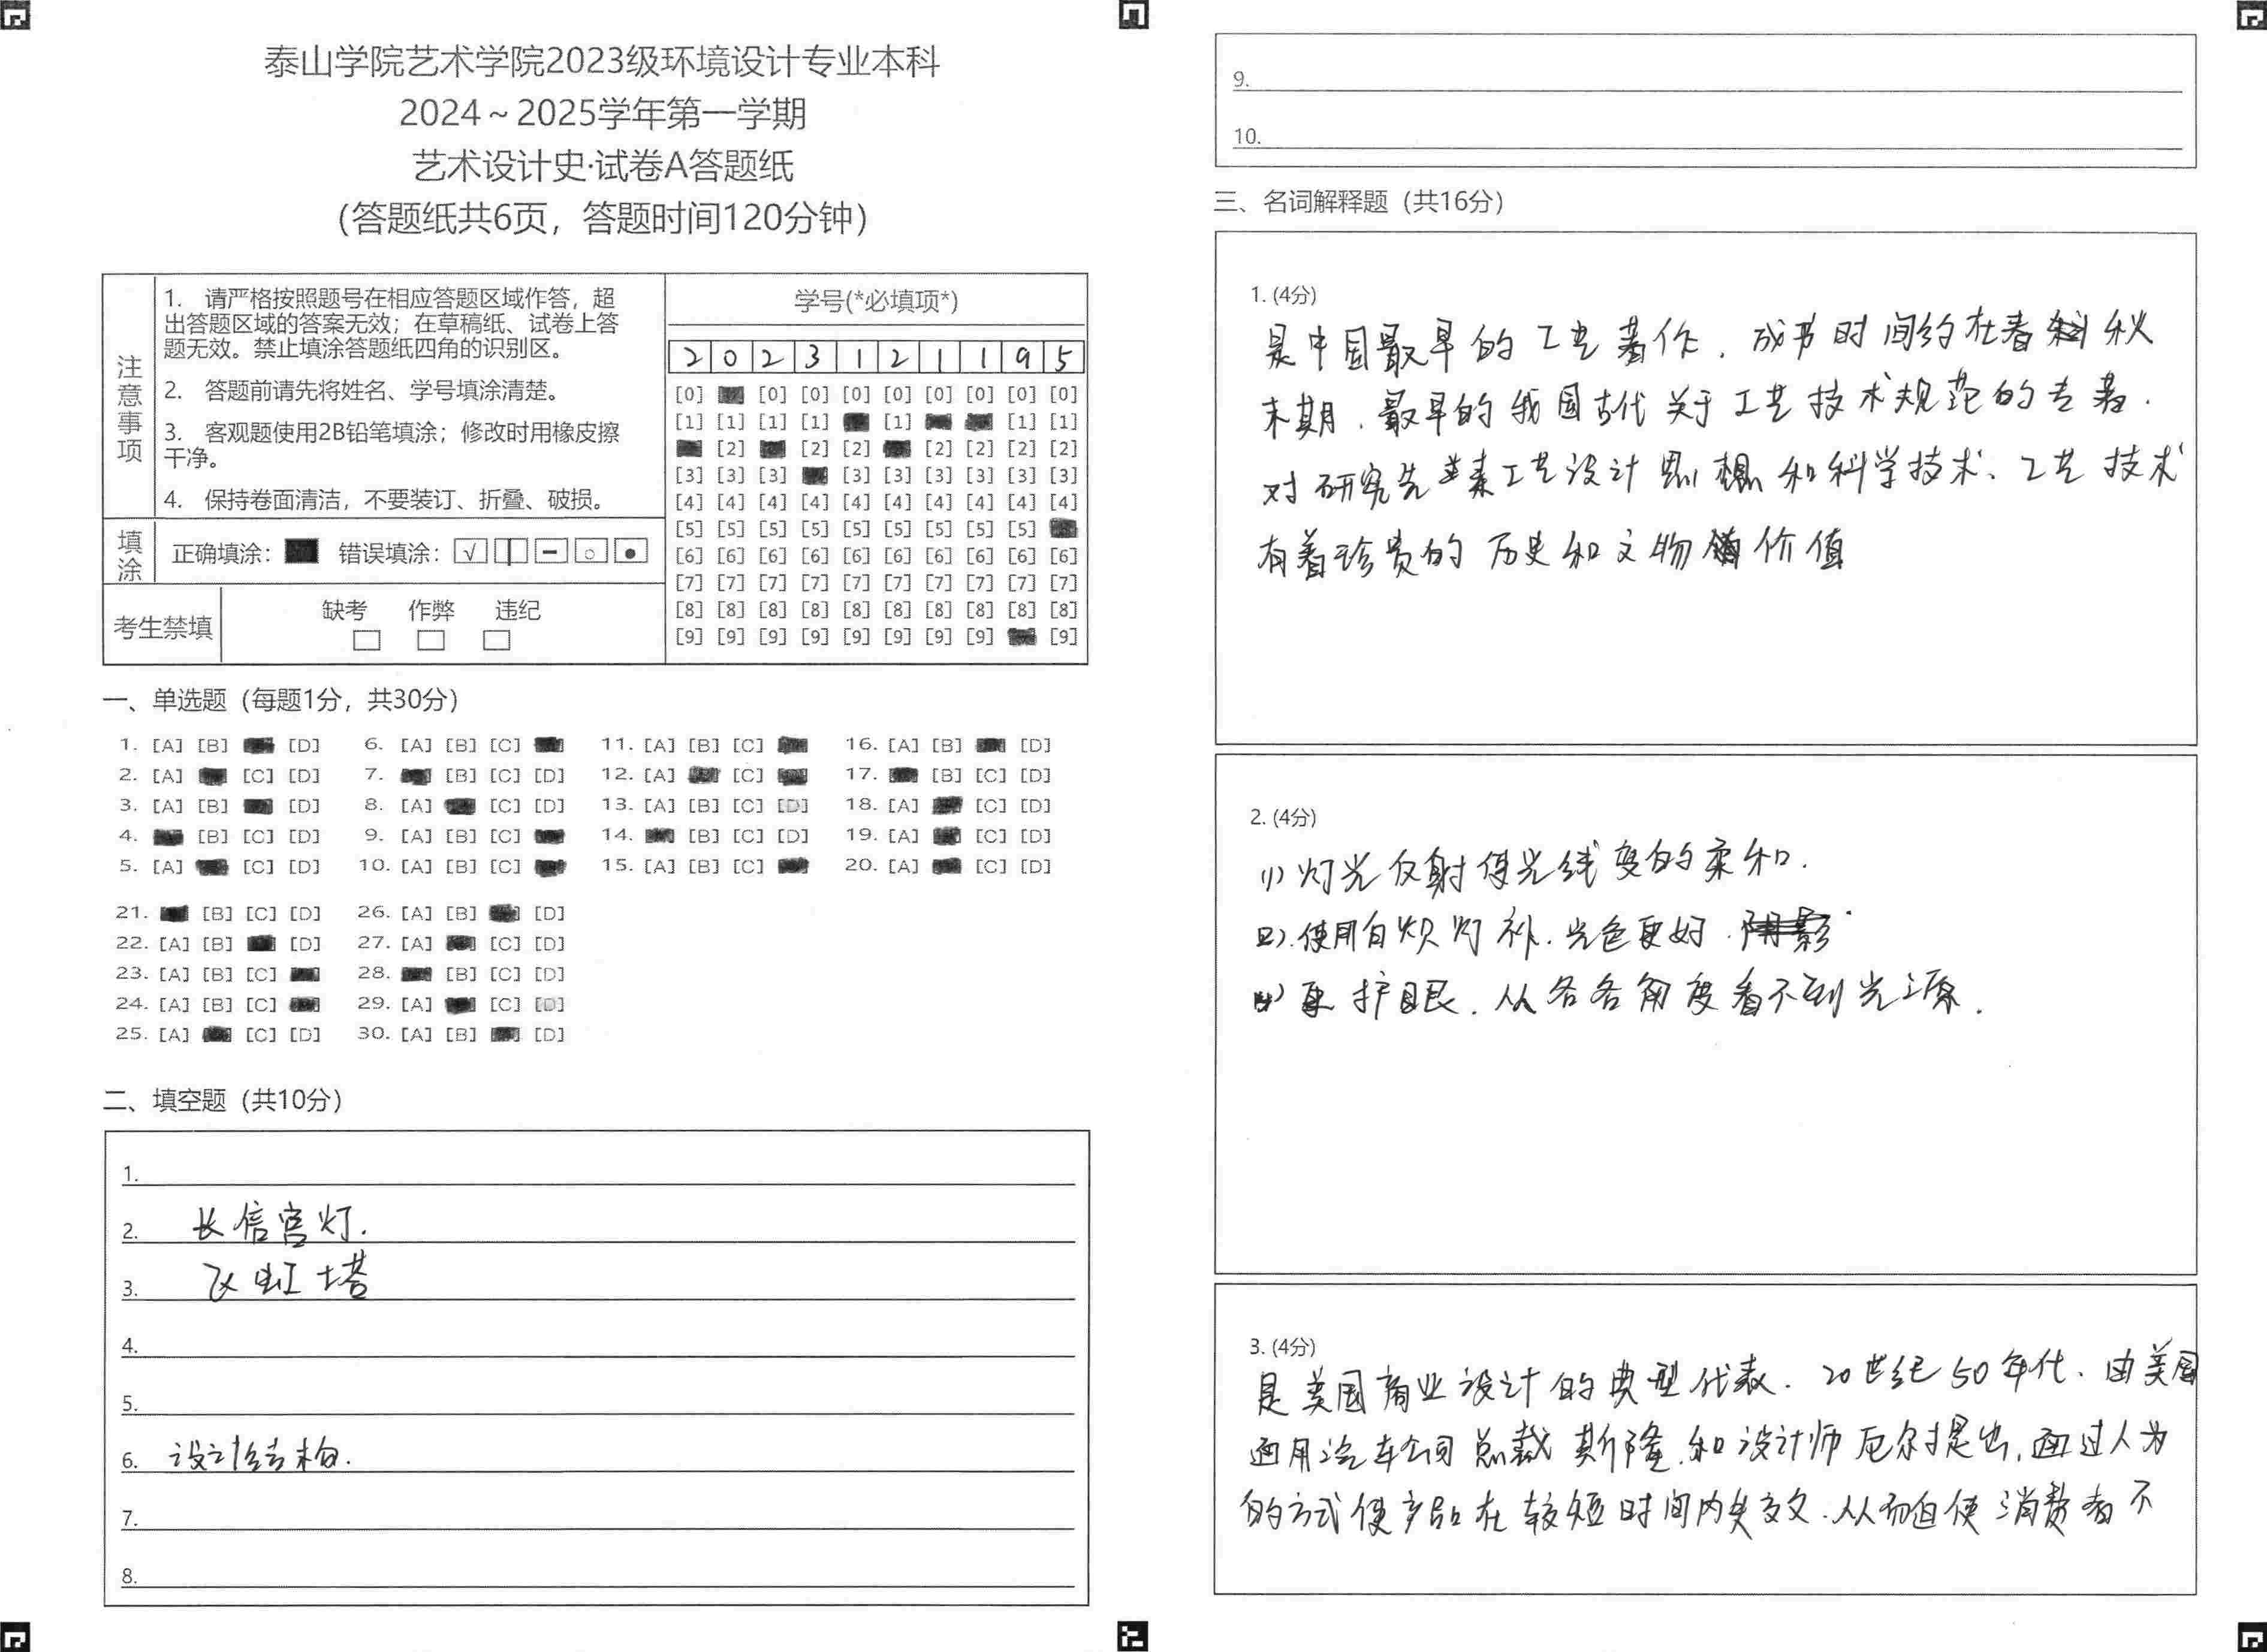 泰山学院艺术学院2023级环境设计专业本科
2024～2025学年第一学期
艺术设计史·试卷A答题纸
（答题纸共6页，答题时间120分钟）
注意事项
1. 请严格按照题号在相应答题区域作答，超
出答题区域的答案无效；在草稿纸、试卷上答
题无效。禁止填涂答题纸四角的识别区。
2. 答题前请先将姓名、学号填涂清楚。
3. 客观题使用2B铅笔填涂；修改时用橡皮擦
干净。
4. 保持卷面清洁，不要装订、折叠、破损。
填涂
正确填涂： 错误填涂： √
考生禁填
缺考 作弊 违纪
学号(*必填项*)
2 0 2 3 1 2 1 1 9 5
[0] [0] [0] [0] [0] [0] [0] [0] [0]
[1] [1] [1] [1] [1] [1] [1]
[2] [2] [2] [2] [2] [2] [2]
[3] [3] [3] [3] [3] [3] [3] [3] [3]
[4] [4] [4] [4] [4] [4] [4] [4] [4] [4]
[5] [5] [5] [5] [5] [5] [5] [5] [5]
[6] [6] [6] [6] [6] [6] [6] [6] [6] [6]
[7] [7] [7] [7] [7] [7] [7] [7] [7] [7]
[8] [8] [8] [8] [8] [8] [8] [8] [8] [8]
[9] [9] [9] [9] [9] [9] [9] [9] [9]
一、单选题（每题1分，共30分）
1. [A] [B] [D] 6. [A] [B] [C] 11. [A] [B] [C] 16. [A] [B] [D]
2. [A] [C] [D] 7. [B] [C] [D] 12. [A] [C] 17. [B] [C] [D]
3. [A] [B] [D] 8. [A] [C] [D] 13. [A] [B] [C] [D] 18. [A] [C] [D]
4. [B] [C] [D] 9. [A] [B] [C] 14. [B] [C] [D] 19. [A] [C] [D]
5. [A] [C] [D] 10. [A] [B] [C] 15. [A] [B] [C] 20. [A] [C] [D]
21. [B] [C] [D] 26. [A] [B] [D]
22. [A] [B] [D] 27. [A] [C] [D]
23. [A] [B] [C] 28. [B] [C] [D]
24. [A] [B] [C] 29. [A] [C] [D]
25. [A] [C] [D] 30. [A] [B] [D]
二、填空题（共10分）
1.
2. 长信宫灯.
3. 飞虹塔
4.
5.
6. 设计结构.
7.
8.
9.
10.
三、名词解释题（共16分）
1. (4分)
是中国最早的工艺著作，成书时间约在春秋
末期，最早的我国古代关于工艺技术规范的专著.
对研究先秦工艺设计思想和科学技术、工艺技术
有着珍贵的历史和文物价值
2. (4分)
(1) 灯光反射使光线变的柔和.
(2).使用白炽灯补.光色更好.
更护眼.从各各角度看不到光源.
3. (4分)
是美国商业设计的典型代表.20世纪50年代、由美国
通用汽车公司总裁斯隆.和设计师厄尔提出,通过人为
的方式使产品在较短时间内失效.从而迫使消费者不